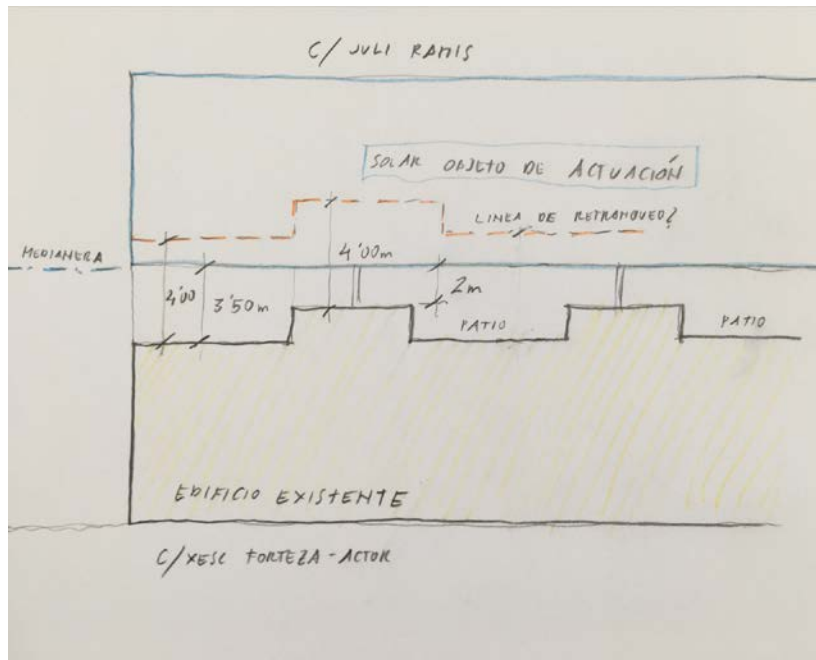 C/ JULI RAMIS
SOLAR OBJETO DE ACTUACIÓN
LINEA DE RETRANQUEO?
MEDIANERA
4'00m
4'00
3'50m
2m
PATIO
PATIO
EDIFICIO EXISTENTE
C/XESC FORTEZA-ACTOR